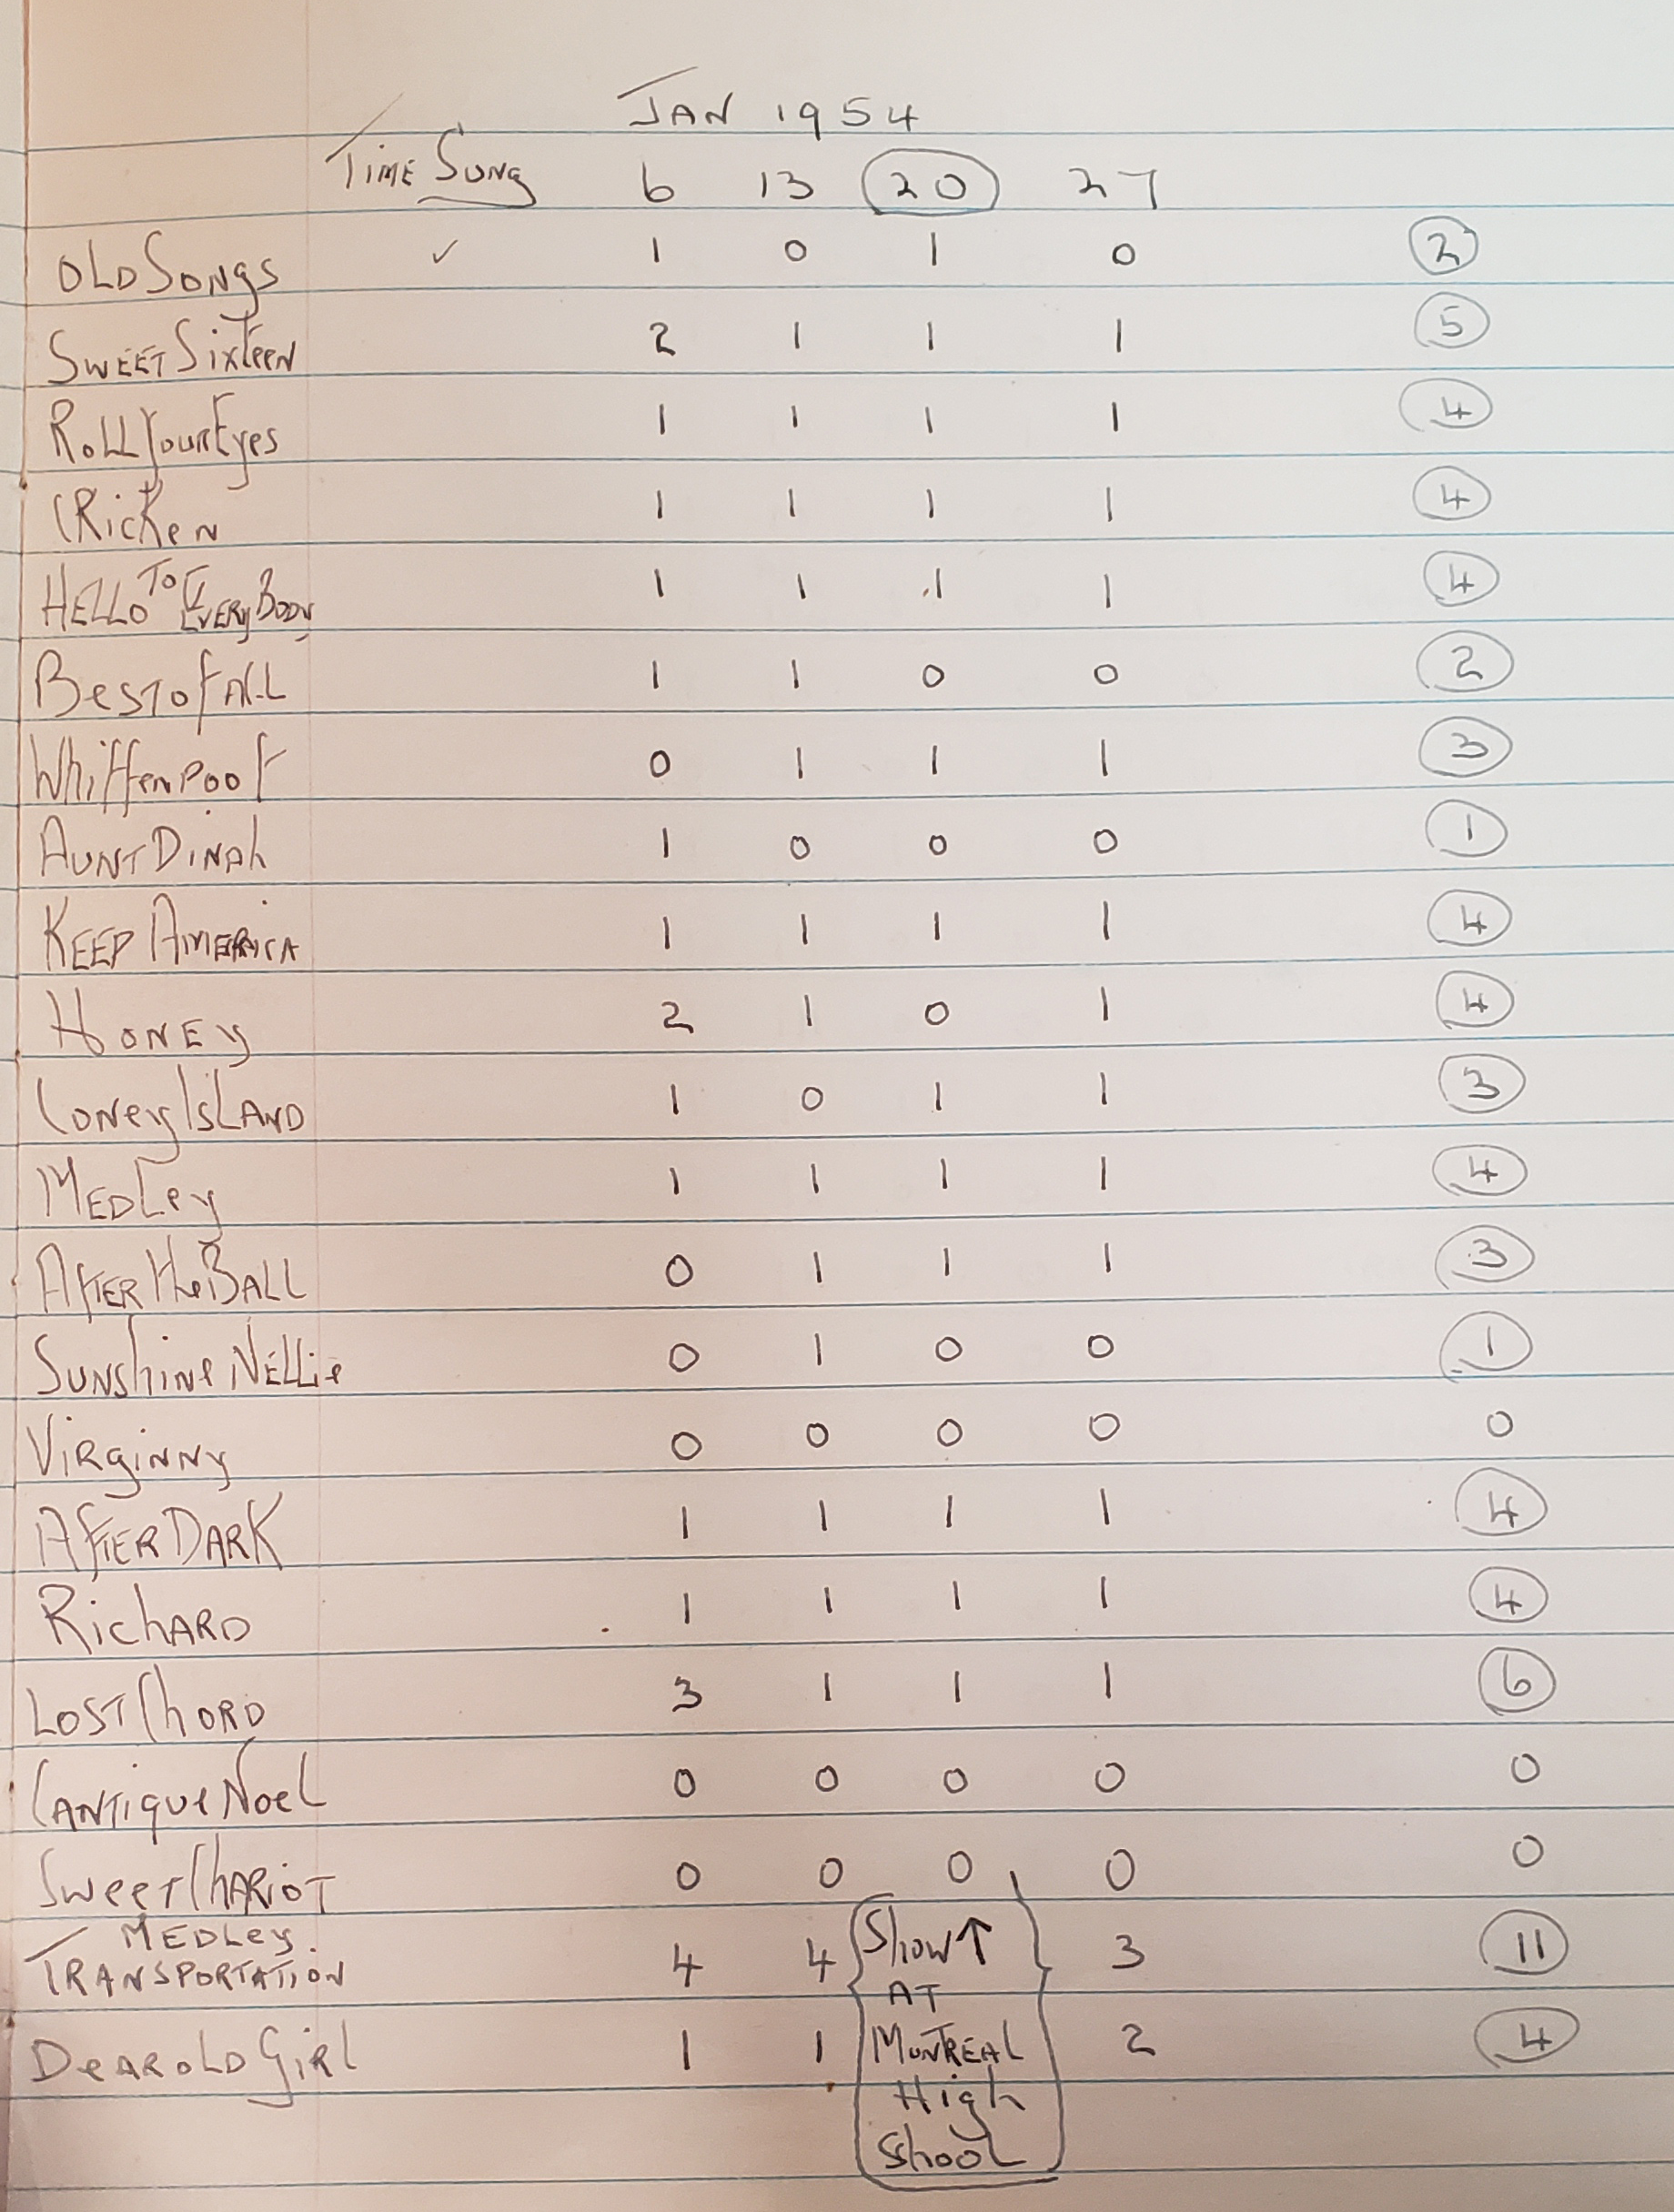 JAN 1954
TIME SUNG 6 13 20 27
OLD SONGS ✓ 1 0 1 0 2
SWEET SIXTEEN 2 1 1 1 5
ROLL YOUR EYES 1 1 1 1 4
CRICKEN 1 1 1 1 4
HELLO TO EVERY BODY 1 1 1 1 4
BEST OF ALL 1 1 0 0 2
WHIFFENPOOF 0 1 1 1 3
AUNT DINAH 1 0 0 0 1
KEEP AMERICA 1 1 1 1 4
HONEY 2 1 0 1 4
CONEY ISLAND 1 0 1 1 3
MEDLEY 1 1 1 1 4
AFTER THE BALL 0 1 1 1 3
SUNSHINE NELLIE 0 1 0 0 1
VIRGINNY 0 0 0 0 0
AFTER DARK 1 1 1 1 4
RICHARD 1 1 1 1 4
LOST CHORD 3 1 1 1 6
CANTIQUE NOEL 0 0 0 0 0
SWEET CHARIOT 0 0 0 0 0
MEDLEY
TRANSPORTATION 4 4 3 11
DEAR OLD GIRL 1 1 2 4
SHOW ↑
AT
MONTREAL
HIGH
SCHOOL